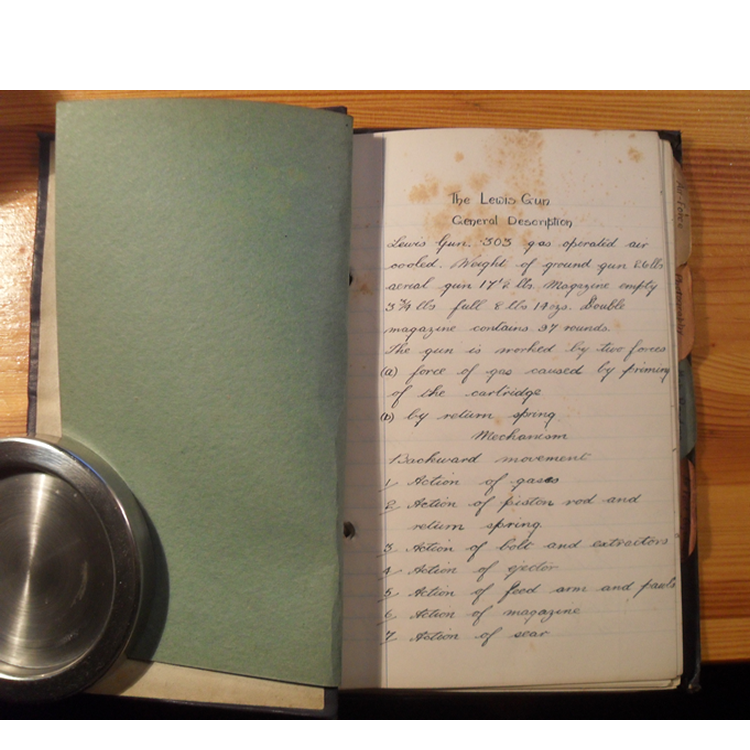 The Lewis Gun
General Description
Lewis Gun. .303 gas operated air
cooled. Weight of ground gun 26 lbs
aerial gun 17½ lbs. Magazine empty
3¾ lbs full 8 lbs 14 ozs. Double
magazine contains 97 rounds.
The gun is worked by two forces
(a) force of gas caused by priming
of the cartridge
(b) by return spring
Mechanism
Backward movement
1 Action of gases
2 Action of piston rod and
return spring.
3 Action of bolt and extractors
4 Action of ejector
5 Action of feed arm and pawls
6 Action of magazine
7 Action of sear